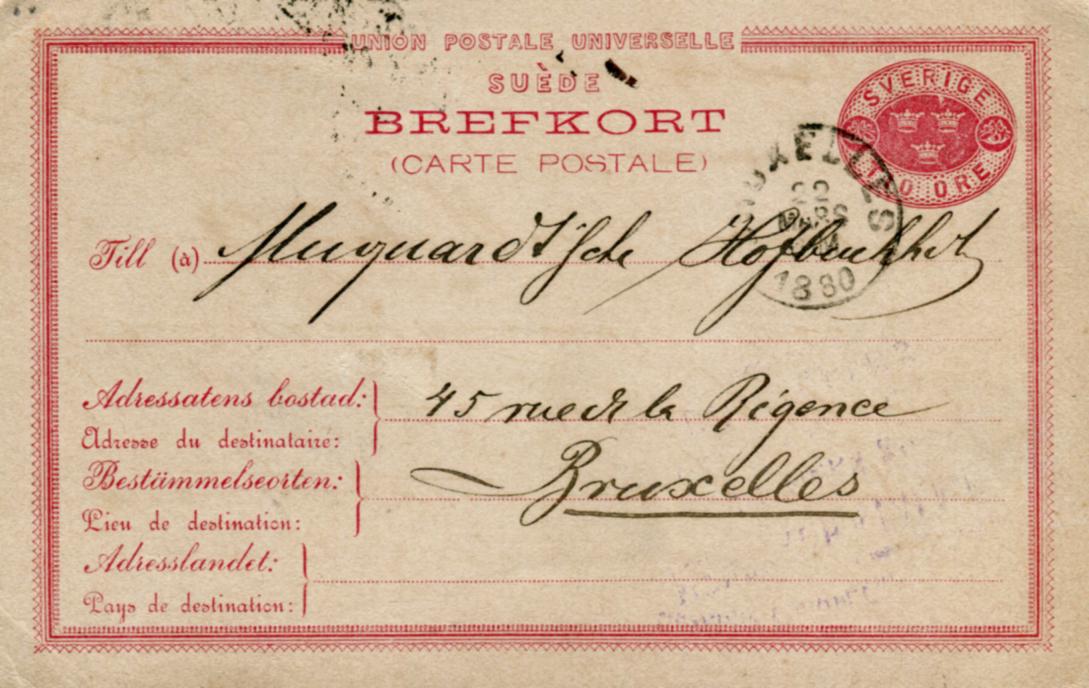 UNION POSTALE UNIVERSELLE
SUÈDE
BREFKORT
(CARTE POSTALE)
SVERIGE
TIO ÖRE
BRUXELLES
22
MARS
1880
Till (à) Muquardt'sche Hofbuchhdt
Adressatens bostad: 45 rue de la Régence
Adresse du destinataire:
Bestämmelseorten: Bruxelles
Lieu de destination:
Adresslandet:
Pays de destination: